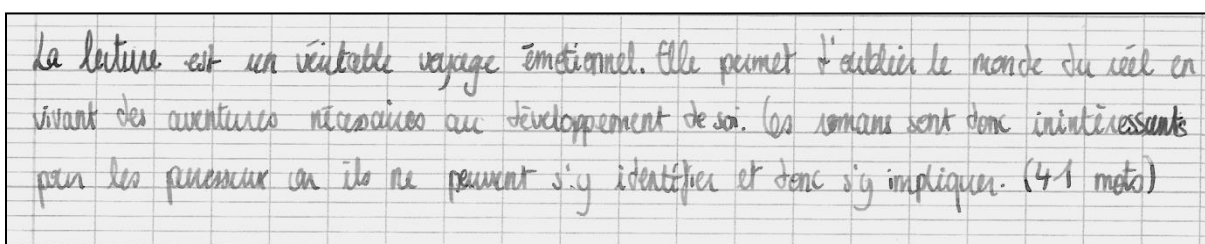 La lecture est un véritable voyage émotionnel. Elle permet d'oublier le monde du réel en
vivant des aventures nécessaires au développement de soi. Ces romans sont donc inintéressants
pour les paresseux car ils ne peuvent s'y identifier et donc s'y impliquer. (41 mots)